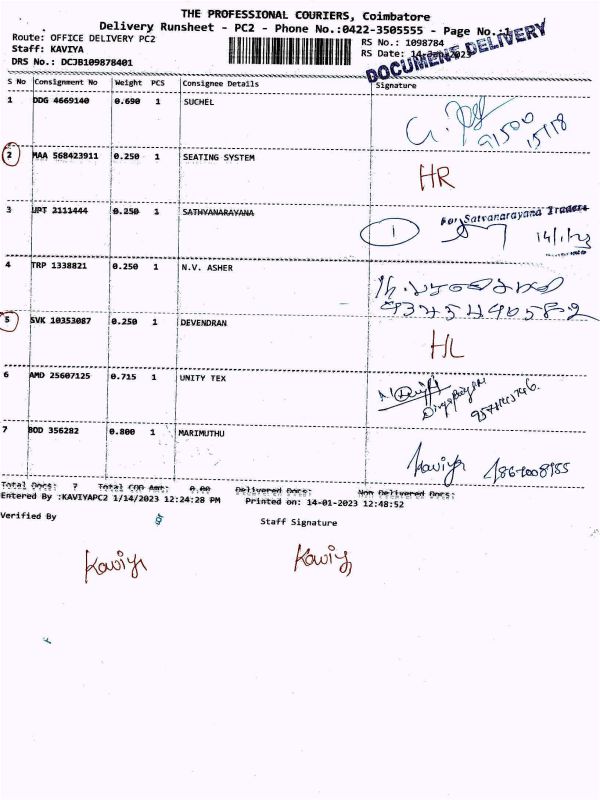 THE PROFESSIONAL COURIERS, Coimbatore
Delivery Runsheet - PC2 - Phone No.:0422-3505555 - Page No.:1
Route: OFFICE DELIVERY PC2
RS No.: 1098784
Staff: KAVIYA
RS Date: 14-Jan-2023
DRS No.: DCJB109878401
DOCUMENT DELIVERY
S No Consignment No Weight PCS Consignee Details Signature
1 DDG 4669140 0.690 1 SUCHEL
91500
15118
2 MAA 568423911 0.250 1 SEATING SYSTEM HR
3 UPT 2111444 0.250 1 SATHYANARAYANA 1
For Satyanarayana Traders
14/1/23
4 TRP 1338821 0.250 1 N.V. ASHER
5 SVK 10353087 0.250 1 DEVENDRAN HL
6 AMD 25607125 0.715 1 UNITY TEX
7 BOD 356282 0.800 1 MARIMUTHU
Kaviya
Total Docs: 7 Total COD Amt: 0.00 Delivered Docs: Non Delivered Docs:
Entered By :KAVIYAPC2 1/14/2023 12:24:28 PM Printed on: 14-01-2023 12:48:52
Verified By Staff Signature
Kaviya Kaviya